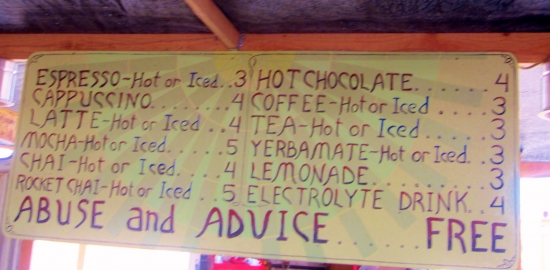 ESPRESSO-Hot or Iced..3
CAPPUCCINO........4
LATTE-Hot or Iced ..4
MOCHA-Hot or Iced.....5
CHAI-Hot or Iced.....4
ROCKET CHAI-Hot or Iced ..5
HOT CHOCOLATE......4
COFFEE-Hot or Iced ....3
TEA-Hot or Iced.....3
YERBAMATE-Hot or Iced..3
LEMONADE.........3
ELECTROLYTE DRINK..4
ABUSE and ADVICE......FREE